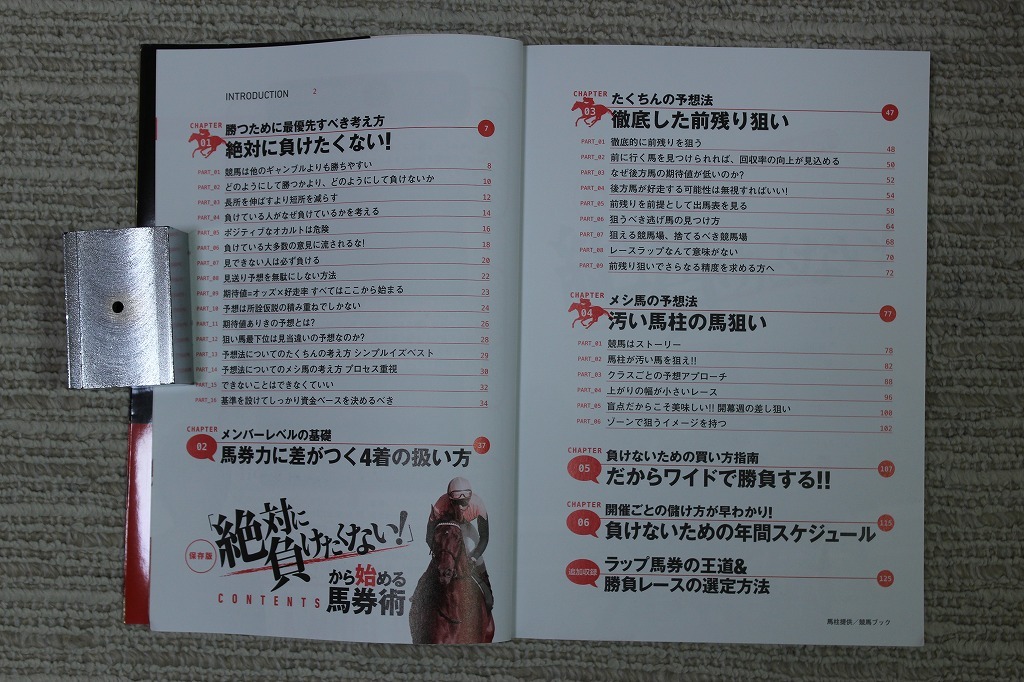 INTRODUCTION 2
CHAPTER 01
勝つために最優先すべき考え方
絶対に負けたくない! 7
PART_01 競馬は他のギャンブルよりも勝ちやすい 8
PART_02 どのようにして勝つかより、どのようにして負けないか 10
PART_03 長所を伸ばすより短所を減らす 12
PART_04 負けている人がなぜ負けているかを考える 14
PART_05 ポジティブなオカルトは危険 16
PART_06 負けている大多数の意見に流されるな! 18
PART_07 見できない人は必ず負ける 20
PART_08 見送り予想を無駄にしない方法 22
PART_09 期待値=オッズ×好走率 すべてはここから始まる 23
PART_10 予想は所詮仮説の積み重ねでしかない 24
PART_11 期待値ありきの予想とは? 26
PART_12 狙い馬最下位は見当違いの予想なのか? 28
PART_13 予想法についてのたくちんの考え方 シンプルイズベスト 29
PART_14 予想法についてのメシ馬の考え方 プロセス重視 30
PART_15 できないことはできなくていい 32
PART_16 基準を設けてしっかり資金ベースを決めるべき 34
CHAPTER 02
メンバーレベルの基礎
馬券力に差がつく4着の扱い方 37
保存版
「絶対に
負けたくない!」
から始める
馬券術
CONTENTS
CHAPTER 03
たくちんの予想法
徹底した前残り狙い 47
PART_01 徹底的に前残りを狙う 48
PART_02 前に行く馬を見つけられれば、回収率の向上が見込める 50
PART_03 なぜ後方馬の期待値が低いのか? 52
PART_04 後方馬が好走する可能性は無視すればいい! 54
PART_05 前残りを前提として出馬表を見る 58
PART_06 狙うべき逃げ馬の見つけ方 64
PART_07 狙える競馬場、捨てるべき競馬場 68
PART_08 レースラップなんて意味がない 70
PART_09 前残り狙いでさらなる精度を求める方へ 72
CHAPTER 04
メシ馬の予想法
汚い馬柱の馬狙い 77
PART_01 競馬はストーリー 78
PART_02 馬柱が汚い馬を狙え!! 82
PART_03 クラスごとの予想アプローチ 88
PART_04 上がりの幅が小さいレース 96
PART_05 盲点だからこそ美味しい!! 開幕週の差し狙い 100
PART_06 ゾーンで狙うイメージを持つ 102
CHAPTER 05
負けないための買い方指南
だからワイドで勝負する!! 107
CHAPTER 06
開催ごとの儲け方が早わかり!
負けないための年間スケジュール 115
追加収録
ラップ馬券の王道&
勝負レースの選定方法 125
馬柱提供/競馬ブック